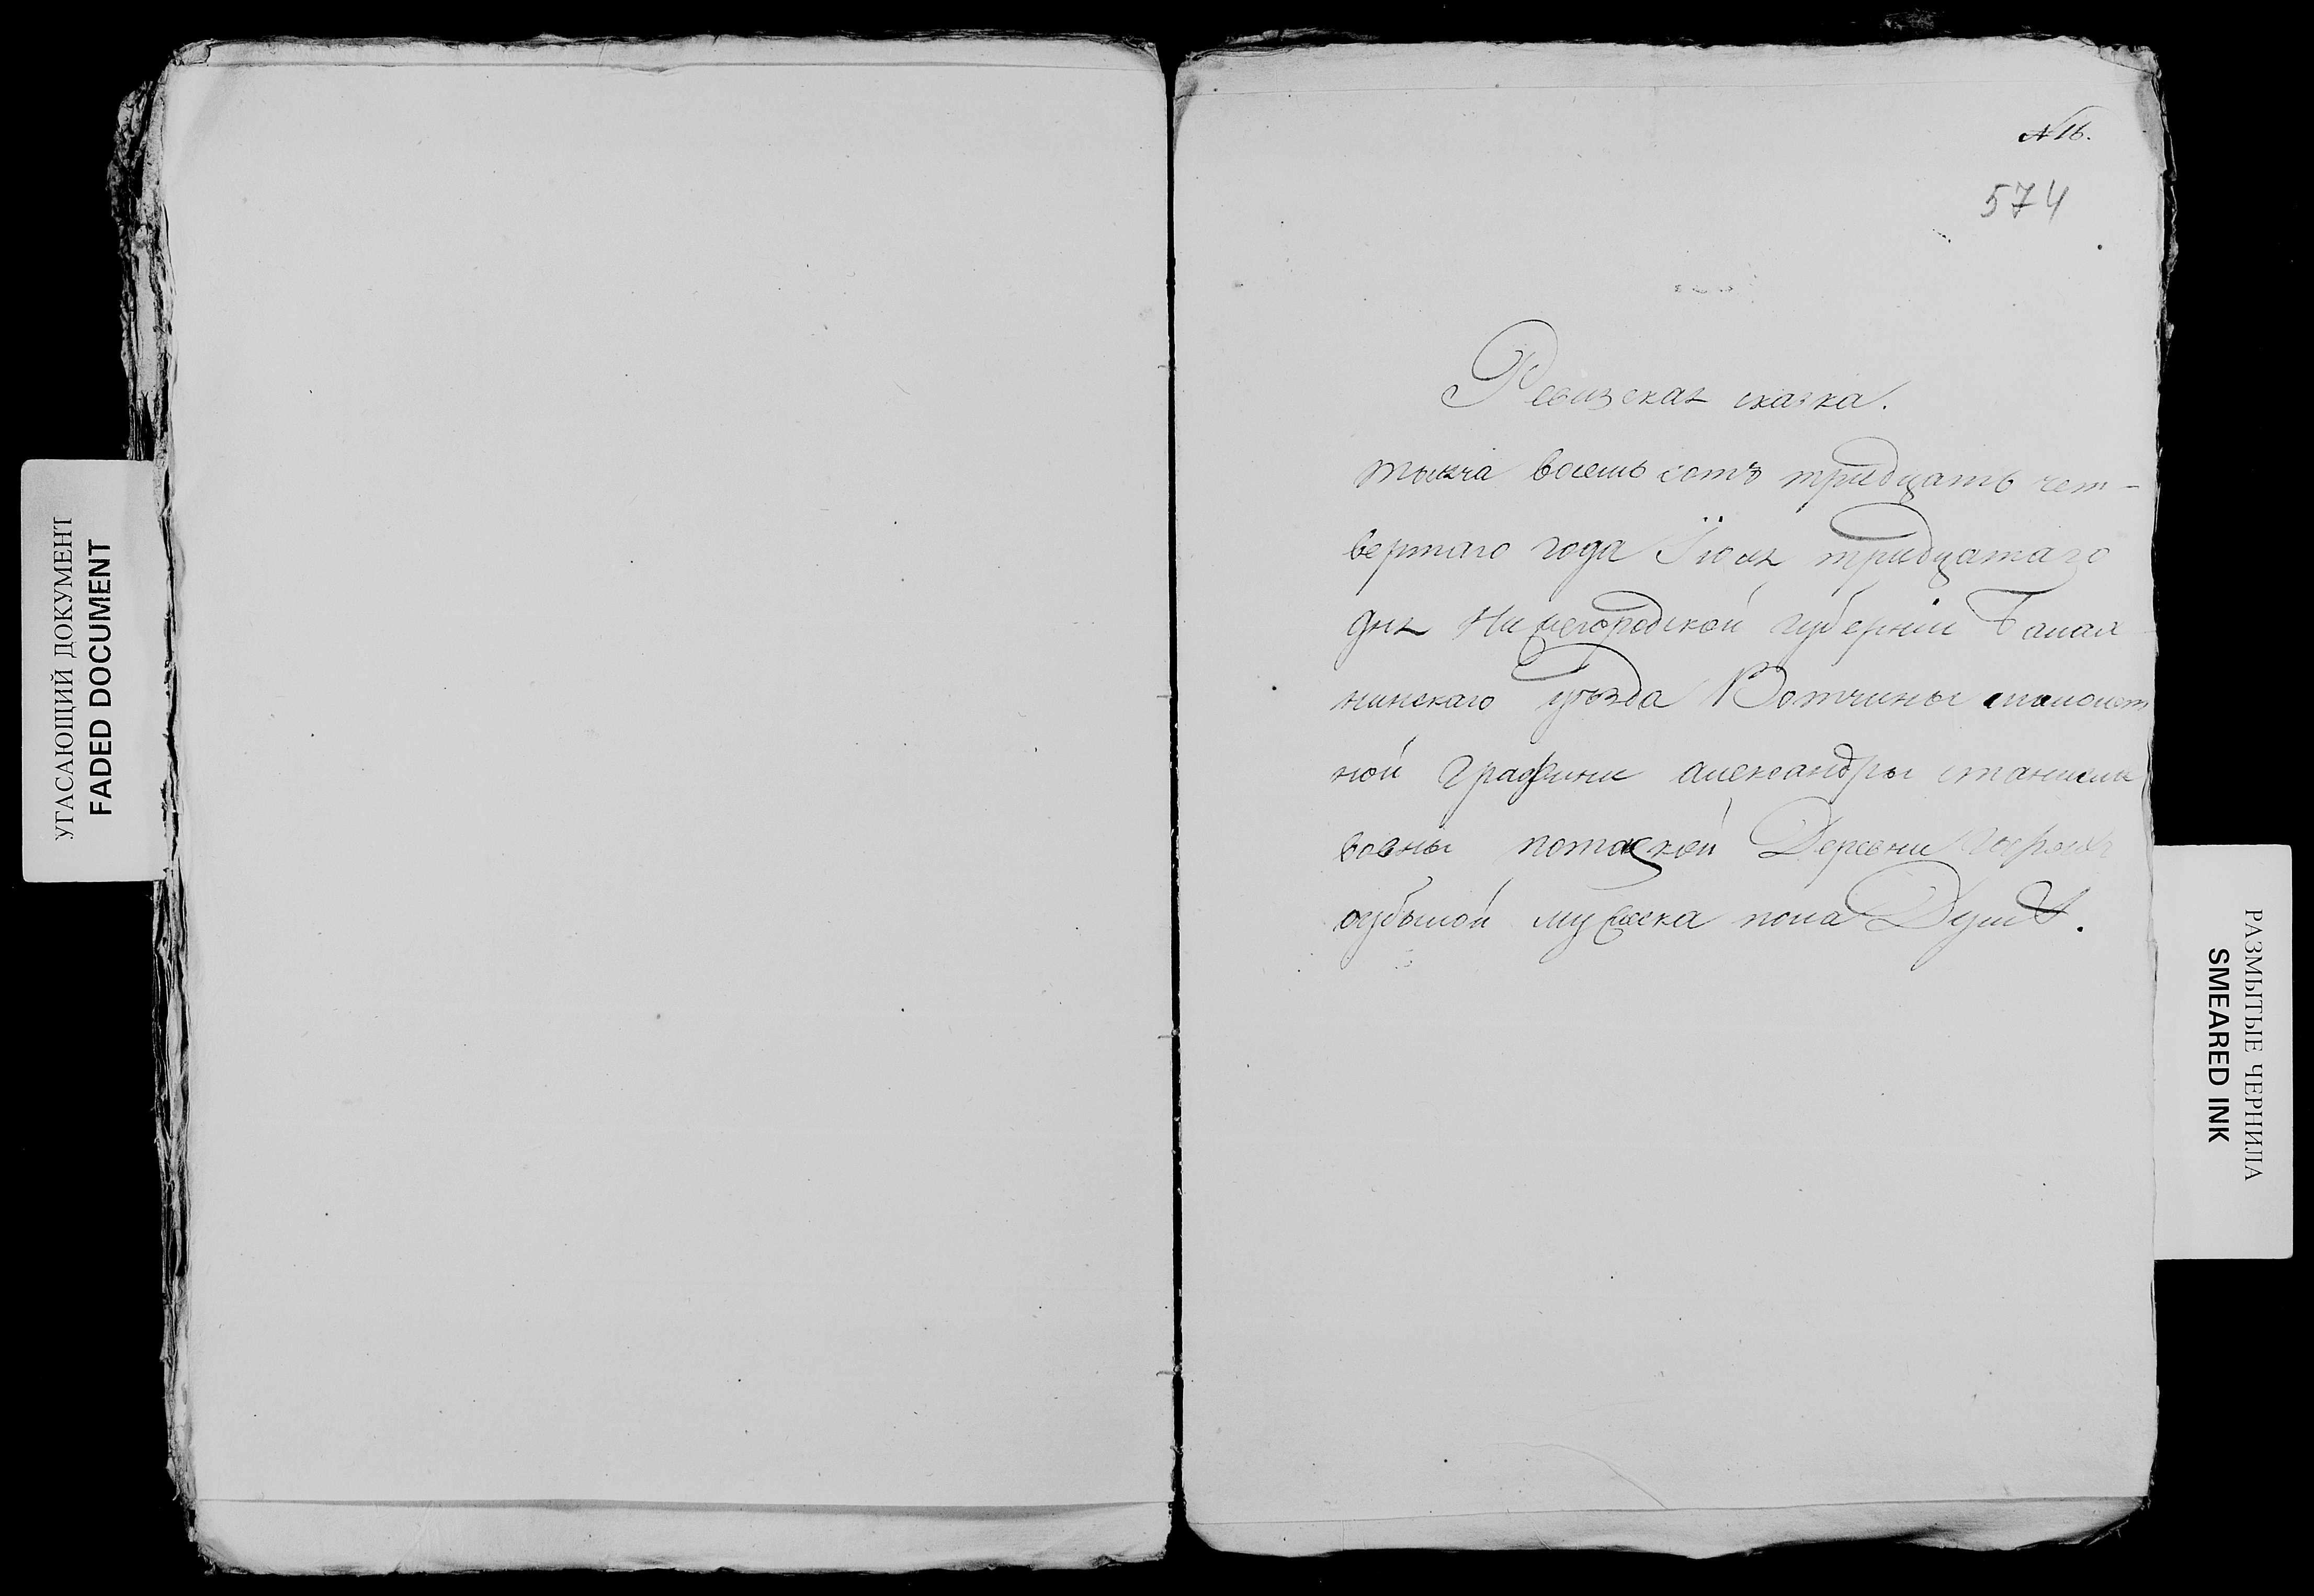 УГАСАЮЩИЙ ДОКУМЕНТ
FADED DOCUMENT
N 16.
574
Ревизская сказка.
тысяча восемь сотъ тридцать чет-
вертаго года Iюля тридцатаго
дня Нижегородской губернии Балах
нинскаго уѣзда Вотчины малолет
ной графини александры станисла
вовны потаской Деревни
о убылой мужеска пола Душѣ.
РАЗМЫТЫЕ ЧЕРНИЛА
SMEARED INK